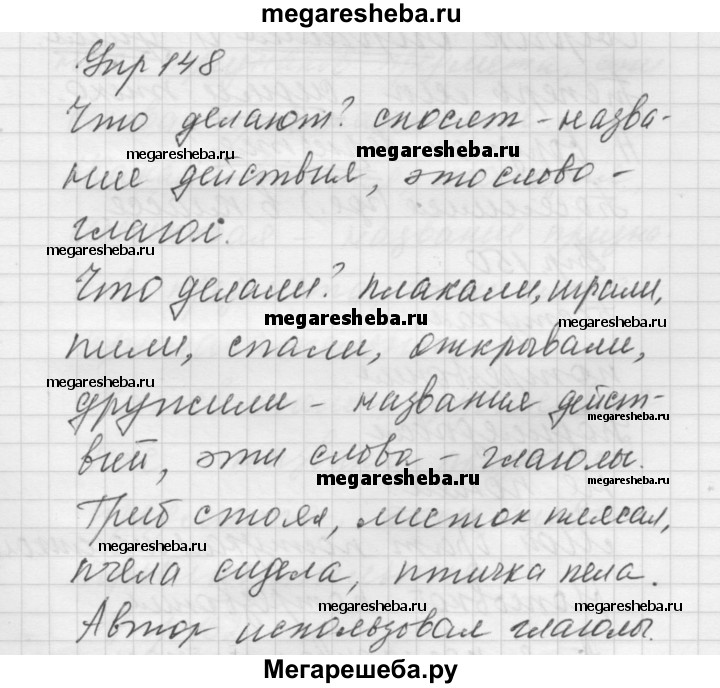 megaresheba.ru
Упр 148
Что делают? спосят - назва-
megaresheba.ru megaresheba.ru
ние действия, это слово -
глагол.
megaresheba.ru
Что делали? плакали, играли,
megaresheba.ru megaresheba.ru
пили, спали, открывали,
megaresheba.ru
дружили - названия дейст-
megaresheba.ru
вий, эти слова - глаголы.
megaresheba.ru megaresheba.ru
Гриб стоял, листок плясал,
megaresheba.ru
пчела сидела, птичка пела.
megaresheba.ru megaresheba.ru
Автор использовал глаголы.
Мегарешеба.ру